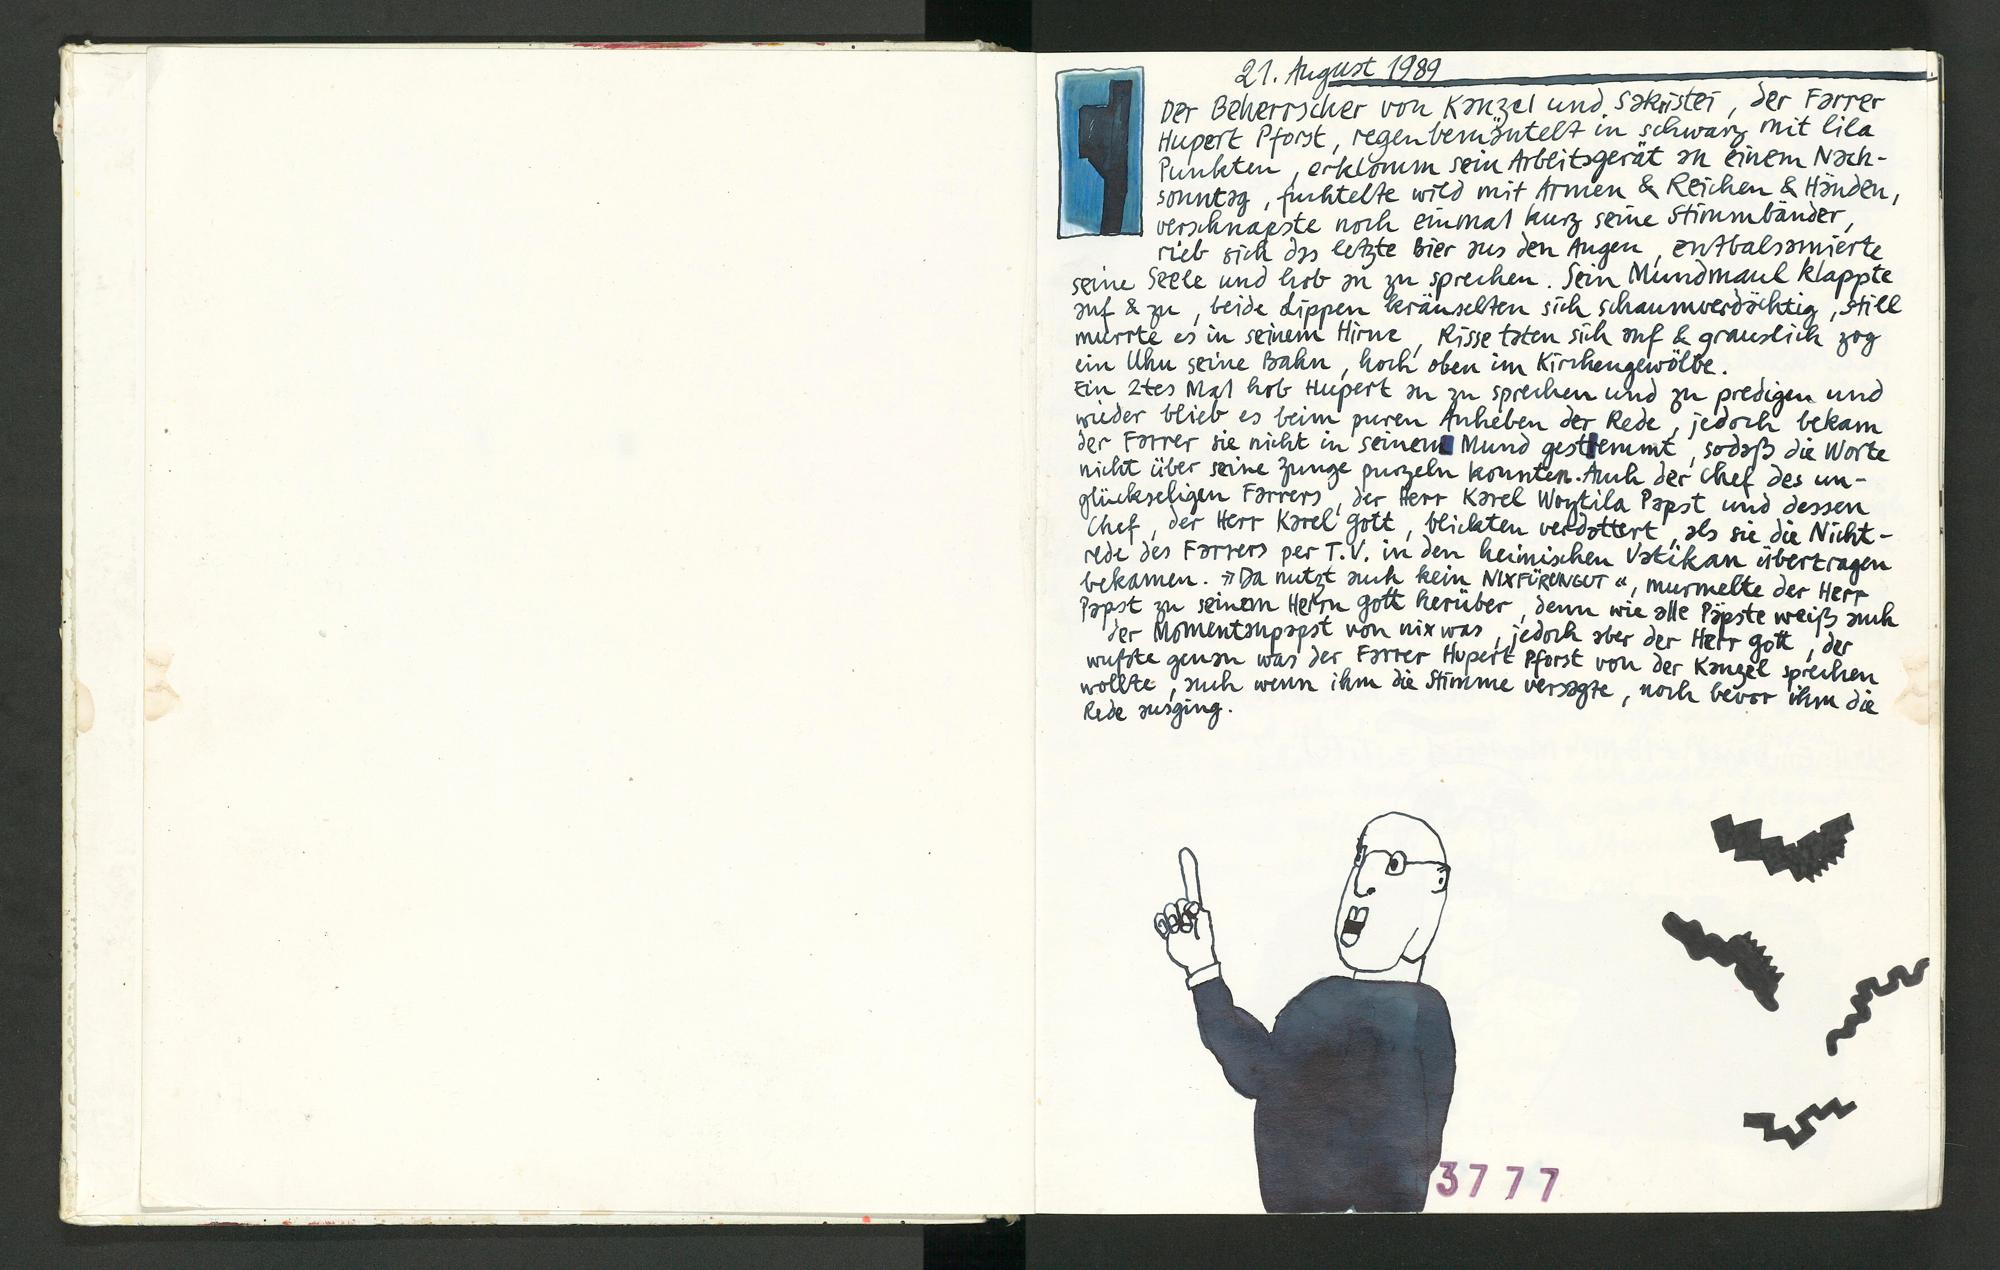 21. August 1989
Der Beherrscher von Kanzel und Sakristei, der Farrer
Hupert Pforst, regenbemäntelt in schwarz mit lila
Punkten, erklomm sein Arbeitsgerät an einem Nach-
sonntag, fuchtelte wild mit Armen & Reichen & Händen,
verschnapste noch einmal kurz seine Stimmbänder,
rieb sich das letzte Bier aus den Augen, entbalsamierte
seine Seele und hob an zu sprechen. Sein Mundmaul klappte
auf & zu, beide Lippen kräuselten sich schaumverdächtig, still
murrte es in seinem Hirne, Risse taten sich auf & grauslich zog
ein Uhu seine Bahn, hoch oben im Kirchengewölbe.
Ein 2tes Mal hob Hupert an zu sprechen und zu predigen und
wieder blieb es beim puren Anheben der Rede, jedoch bekam
der Farrer sie nicht in seinem Mund gestemmt, sodaß die Worte
nicht über seine Zunge purzeln konnten. Auch der Chef des un-
glückseligen Farrers, der Herr Karel Woytila Papst und dessen
Chef, der Herr Karel Gott, blickten verdattert, als sie die Nicht-
rede des Farrers per T.V. in den heimischen Vatikan übertragen
bekamen. »Da nutzt auch kein NIXFÜRUNGUT«, murmelte der Herr
Papst zu seinem Herrn Gott herüber, denn wie alle Päpste weiß auch
der Momentanpapst von nix was, jedoch aber der Herr Gott, der
wußte genau was der Farrer Hupert Pforst von der Kanzel sprechen
wollte, auch wenn ihm die Stimme versagte, noch bevor ihm die
Rede ausging.
3777